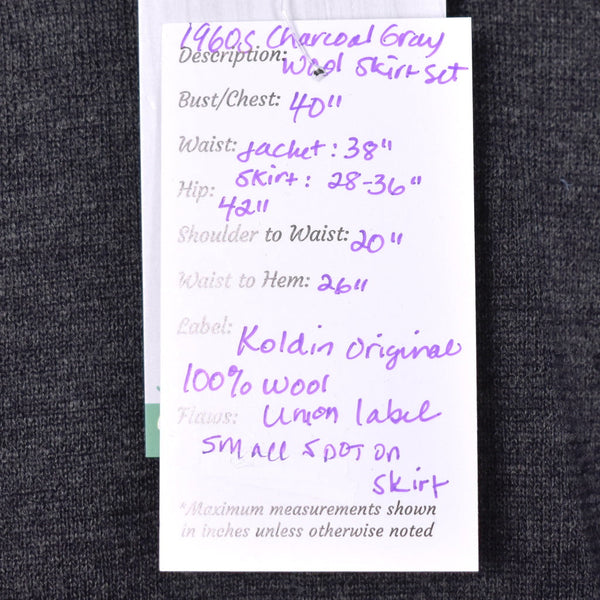 1960s Charcoal Gray
Description: Wool Skirt Set
Bust/Chest: 40"
Waist: jacket: 38"
skirt: 28-36"
Hip: 42"
Shoulder to Waist: 20"
Waist to Hem: 26"
Label: Koldin Original
100% wool
Flaws: Union label
small spot on
skirt
*Maximum measurements shown
in inches unless otherwise noted